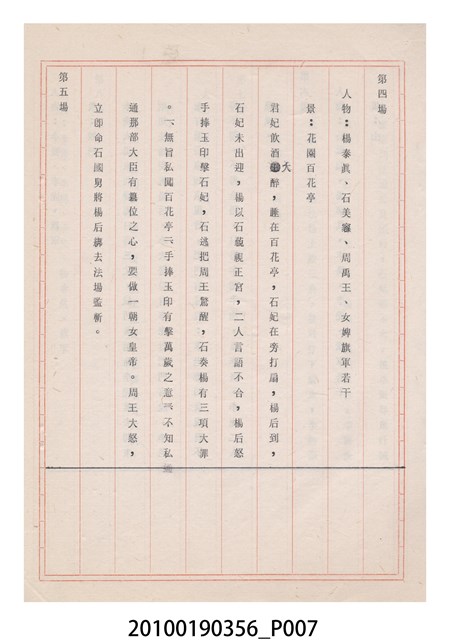 第四場
人物：楊泰眞、石美蓉、周禹王、女婢旗軍若干
景：花園百花亭
君妃飲酒大醉，睡在百花亭，石妃在旁打扇，楊后到，
石妃未出迎，楊以石藐視正宮，二人言語不合，楊后怒
手捧玉印擊石妃，石逃把周王驚醒，石奏楊有三項大罪
。一、無旨私闖百花亭二、手捧玉印有擊萬歲之意三、不知私通
通那部大臣有簒位之心，要做一朝女皇帝。周王大怒，
立卽命石國舅將楊后綁去法場監斬。
第五場
20100190356_P007